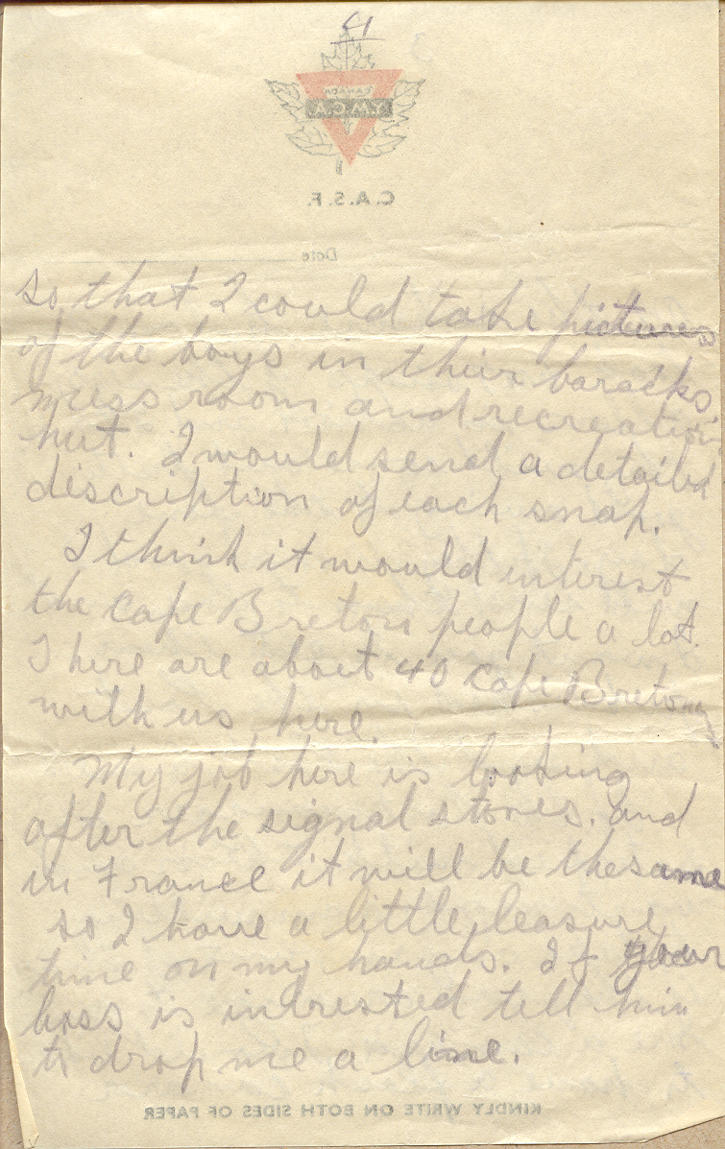 4
CANADA
Y.M.C.A.
C.A.S.F.
Date
so that I could take pictures
of the boys in their baracks
mess room and recreation
hut. I would send a detailed
description of each snap.
I think it would interest
the Cape Breton people a lot.
There are about 40 Cape Bretoners
with us here.
My job here is looking
after the signal stores. and
in France it will be the same
so I have a little leasure
time on my hands. If your
boss is intrested tell him
to drop me a line.
KINDLY WRITE ON BOTH SIDES OF PAPER